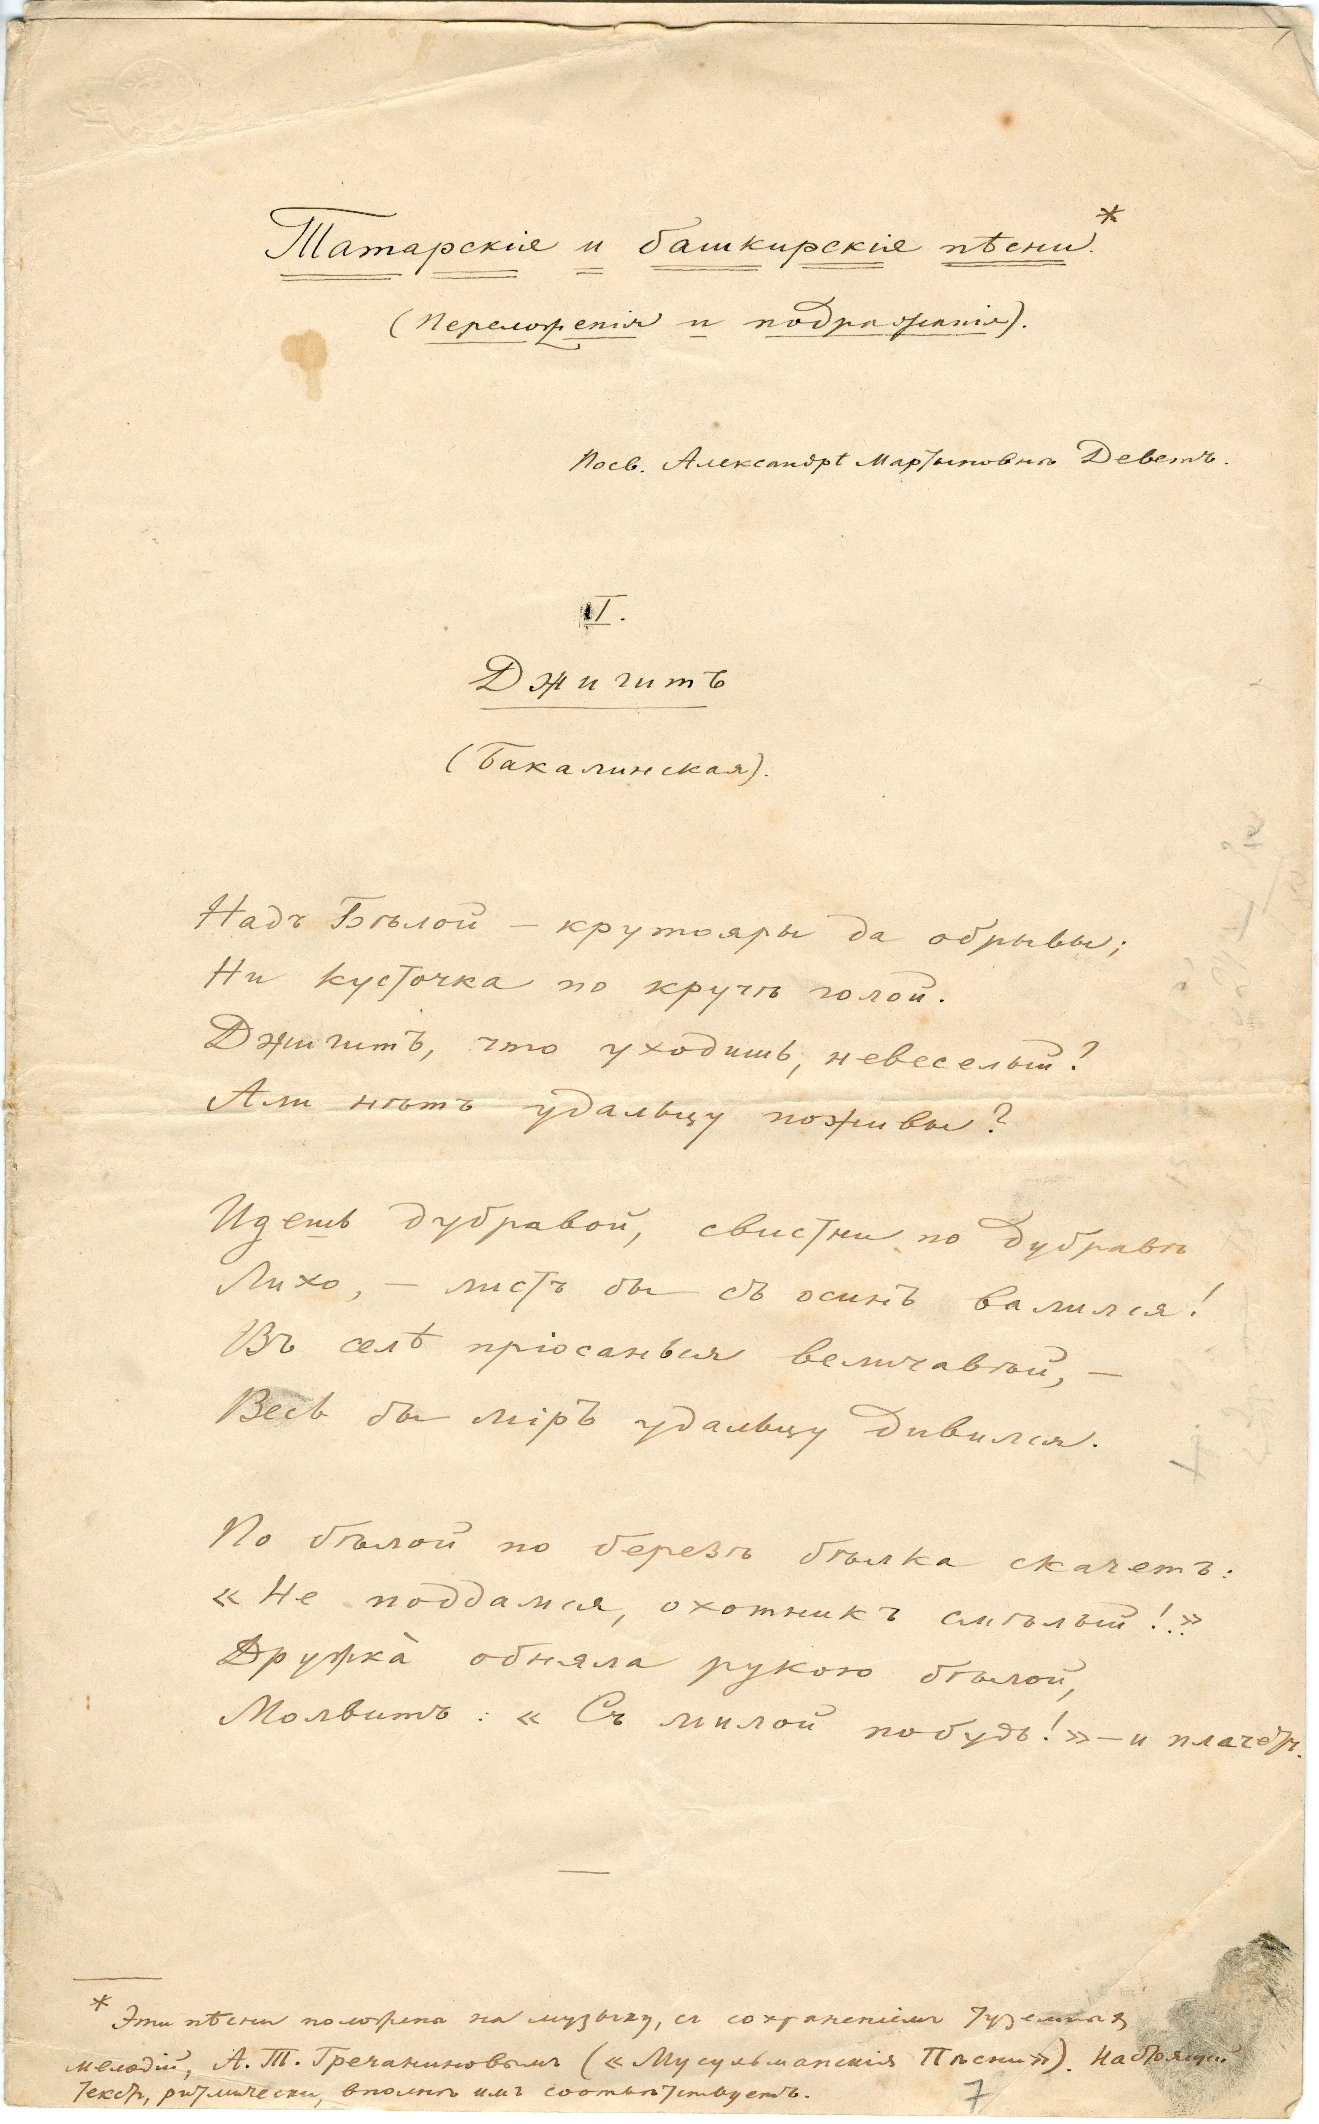 Татарскія и башкирскія пѣсни.*
(Переложенія и подражанія).
Посв. Александрѣ Мартыновнѣ Деветъ.
I.
Джигитъ
(Бакалинская).
Надъ Бѣлой – крутояры да обрывы;
Ни кусточка по кручѣ голой.
Джигитъ, что уходишь, невеселый?
Али нѣтъ удальцу поживы?
Идешь дубравой, свистни по дубравѣ
Лихо, – листъ бы съ осинъ валился!
Въ селѣ пріосанься величавѣй, –
Весь бы міръ удальцу дивился.
По бѣлой по березѣ бѣлка скачетъ:
« Не поддамся, охотникъ смѣлый! »
Дружкà обняла рукою бѣлой,
Молвитъ: « Съ милой побудь! » – и плачетъ.
* Эти пѣсни положены на музыку, съ сохраненіемъ туземныхъ
мелодій, А. Т. Гречаниновымъ (« Мусульманскія Пѣсни »). Настоящій
текстъ, ритмически, вполнѣ имъ соотвѣтствуетъ.
7